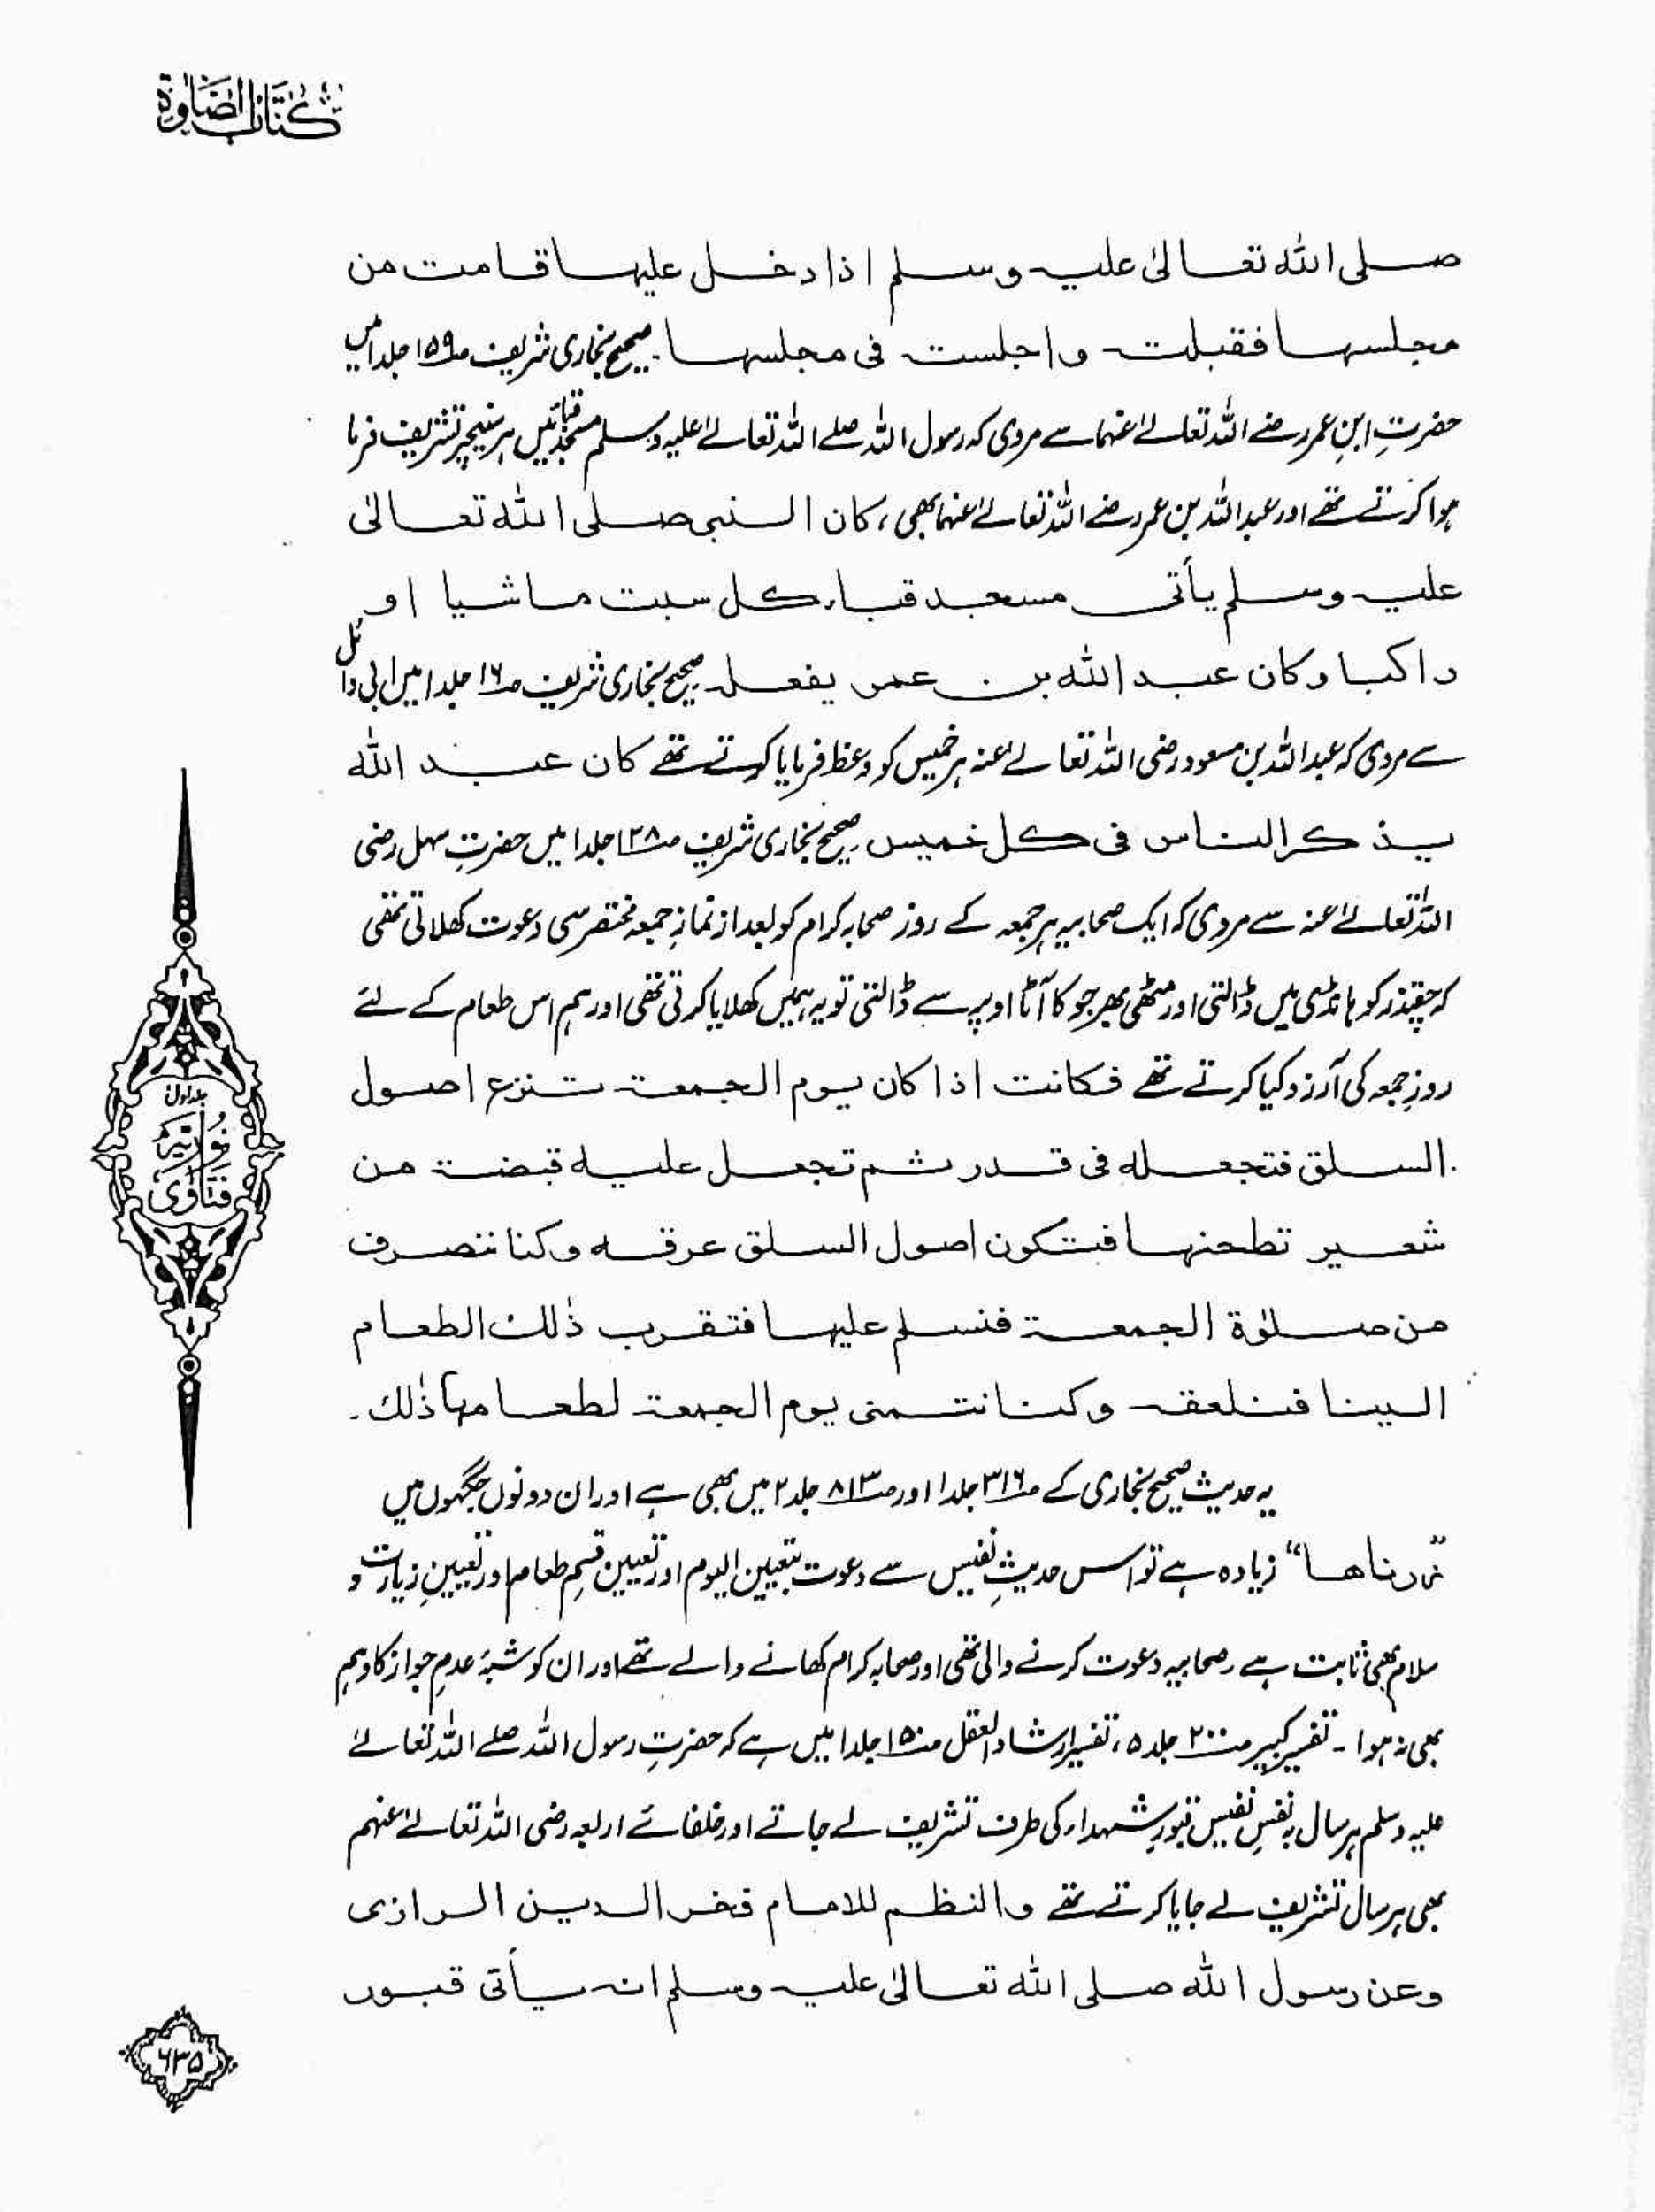 کتاب الصلوٰة
صلی اللہ تعالیٰ علیہ وسلم اذا دخل علیہا قامت من
مجلسہا فقبلتہ واجلستہ فی مجلسہا۔ صحیح بخاری شریف ص۱۵۹ جلد۱ میں
حضرتِ ابنِ عمر رضے اللہ تعالےٰ عنہما سے مروی کہ رسول اللہ صلے اللہ تعالےٰ علیہ وسلم مسجدِ قبا میں ہر سنیچر تشریف فرما
ہوا کرتے تھے اور عبداللہ بن عمر رضے اللہ تعالےٰ عنہما بھی، کان النبی صلی اللہ تعالیٰ
علیہ وسلم یأتی مسجد قباء کل سبت ماشیا او
راکبا وکان عبد اللہ بن عمر یفعلہ صحیح بخاری شریف ص۱۶ جلد۱ میں ابی وائل
سے مروی کہ عبداللہ بن مسعود رضی اللہ تعالےٰ عنہ ہر خمیس کو وعظ فرمایا کرتے تھے کان عبد اللہ
یذکر الناس فی کل خمیس صحیح بخاری شریف ص۱۲۸ جلد۱ میں حضرتِ سہل رضی
اللہ تعالےٰ عنہ سے مروی کہ ایک صحابیہ ہر جمعہ کے روز صحابہ کرام کو بعد از نمازِ جمعہ مختصر سی دعوت کھلاتی تھی
کہ چقندر کو ہانڈی میں ڈالتی اور مٹھی بھر جو کا آٹا اوپر سے ڈالتی تو یہ ہمیں کھلایا کرتی تھی اور ہم اس طعام کے لئے
روزِ جمعہ کی آرزو کیا کرتے تھے فکانت اذا کان یوم الجمعۃ تنزع اصول
السلق فتجعلہ فی قدر ثم تجعل علیہ قبضۃ من
شعیر تطحنہا فتکون اصول السلق عرقہ وکنا ننصرف
من صلوٰة الجمعۃ فنسلم علیہا فتقرب ذٰلک الطعام
الینا فنلعقہ وکنا نتمنی یوم الجمعۃ لطعامہا ذٰلک۔
یہ حدیث صحیح بخاری کے ص۳۱۶ جلد۱ اور ص۸۱۳ جلد۲ میں بھی ہے اور ان دونوں جگہوں میں
”زرناھا“ زیادہ ہے تو اس حدیثِ نفیس سے دعوت بتعیین الیوم اور تعیین قسمِ طعام اور تعیینِ زیارت و
سلام بھی ثابت ہے رصحابیہ دعوت کرنے والی تھی اور صحابہ کرام کھانے والے تھے اور ان کو شبۂ عدمِ جواز کا وہم
بھی نہ ہوا۔ تفسیر کبیر ص۲۰۰ جلد ۵، تفسیر ارشاد العقل ص۱۵۰ جلد۱ میں ہے کہ حضرتِ رسول اللہ صلے اللہ تعالےٰ
علیہ وسلم ہر سال بہ نفسِ نفیس قبورِ شہداء کی طرف تشریف لے جاتے اور خلفائے اربعہ رضی اللہ تعالےٰ عنہم
بھی ہر سال تشریف لے جایا کرتے تھے والنظم للامام فخر الدین الرازی
وعن رسول اللہ صلی اللہ تعالیٰ علیہ وسلم انہ یأتی قبور
جلد اول
نوریہ
فتاوٰی
۶۳۵